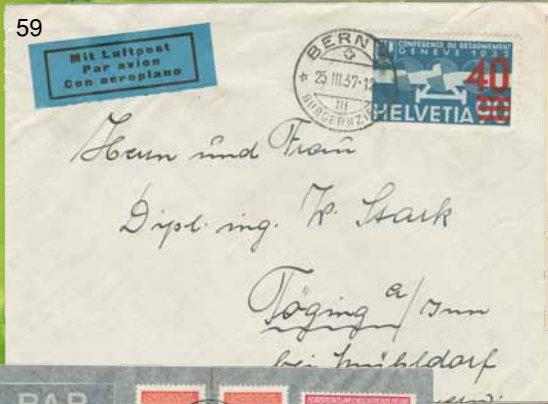 59
Mit Luftpost
Par avion
Con aeroplano
BERN
25.III.37-12
III
BURGERNZIEL
CONFERENCE DU DESARMEMENT
GENEVE 1932
40
HELVETIA 90
Herrn und Frau
Dipl. ing. W. Stark
Töging a/Inn
bei Mühldorf
PAR
FÜRSTENTUM LIECHTENSTEIN